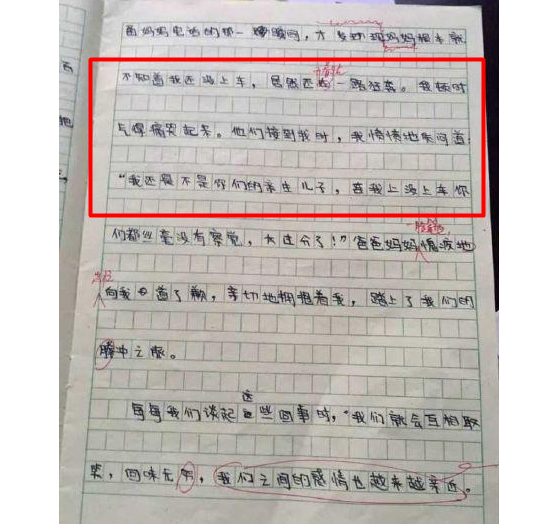 面妈妈电话的那一瞬间，才发现妈妈根本就
不知道我还没上车，居然还在一路狂奔。我顿时
气得痛哭起来。他们接到我时，我愤愤地失问道：
“我还是不是你们的亲生儿子，连我上没上车你
一脸羞愧，
们都丝毫没有察觉，太过分了！”爸爸妈妈愧疚地
向我道了歉，亲切地拥抱着我，踏上了我们的
腾冲之旅。
这
每每我们谈起些回事时，“我们就会互相取
笑，回味无穷，我们之间的感情也越来越亲近。